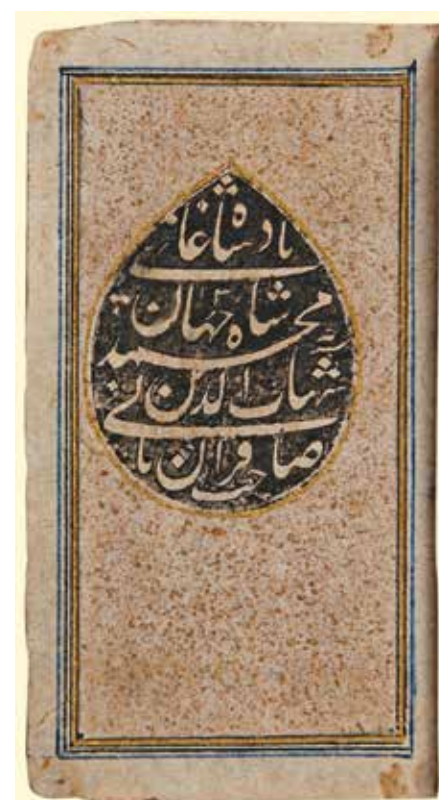 پادشاه غازی
شاه جهان
محمد
شهاب الدین
صاحب قران ثانی